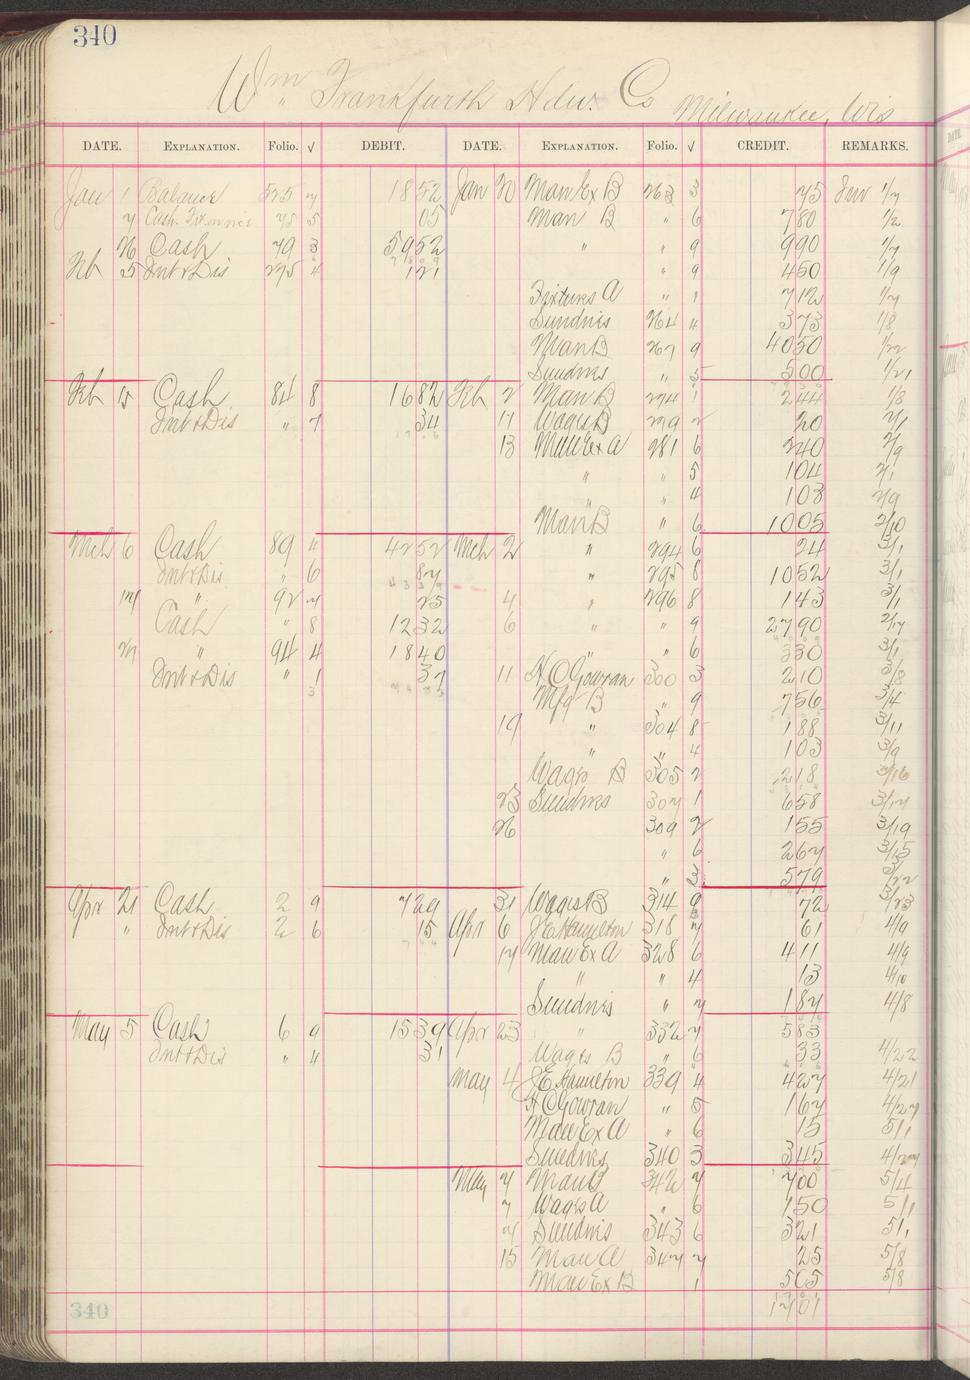 340
Wm Frankfurth Hdw. Co Milwaukee, Wis
DATE. EXPLANATION. Folio. √ DEBIT. DATE. EXPLANATION. Folio. √ CREDIT. REMARKS.
Jan 1 Balance 525 7 1852 Jan 20 Man Ex B 263 3 75 Inv 1/7
7 Cash 75 5 05 Man B " 6 780 1/2
26 Cash 79 3 5952 " " 9 990 1/7
Feb 5 Int & Dis 275 4 121 " 9 450 1/9
Fixtures A " 1 712 1/7
Sundries 264 4 373 1/8
Man B 267 9 4050 1/22
Sundries " 5 500 1/21
Feb 15 Cash 84 8 1682 Feb 2 Man B 274 1 244 1/8
Int & Dis " 7 34 11 Wages B 279 2 20 2/1
13 Man Ex A 281 6 240 2/9
" " 5 104 2/1
" " 4 103 2/9
Man B " 6 1005 2/10
Mch 6 Cash 89 4 4252 Mch 2 " 294 6 24 3/1
Int & Dis " 6 87 " 295 8 1052 3/1
17 " 92 7 25 4 " 296 8 143 3/1
Cash " 8 1232 6 " " 9 2790 2/17
27 " 94 4 1840 " " 6 330 3/1
Int & Dis " 1 37 11 H C Gowran 300 3 210 3/8
Mfg B " 9 756 3/4
19 " 304 8 188 3/11
" " 4 103 3/9
Wages B 305 2 218 3/16
23 Sundries 307 1 658 3/17
26 309 2 155 3/19
" 6 267 3/15
" 3 579 3/22
Apr 21 Cash 2 9 729 31 Wages B 314 9 72 3/23
" Int & Dis 2 6 15 Apr 6 J E Hamilton 318 7 61 4/9
17 Man Ex A 328 6 411 4/9
" " 4 13 4/10
Sundries " 7 187 4/8
May 5 Cash 6 9 1539 Apr 23 " 332 7 583
Int & Dis " 4 31 Wages B " 6 33 4/22
May 4 J E Hamilton 339 4 427 4/21
H C Gowran " 5 167 4/27
Man Ex A " 6 15 5/1
Sundries 340 3 345 4/27
May 7 Man B 342 7 700 5/4
7 Wages A " 6 150 5/1
Sundries 343 6 321 5/1
15 Man A 347 7 25 5/8
Man Ex B 1 505 5/8
340 1701